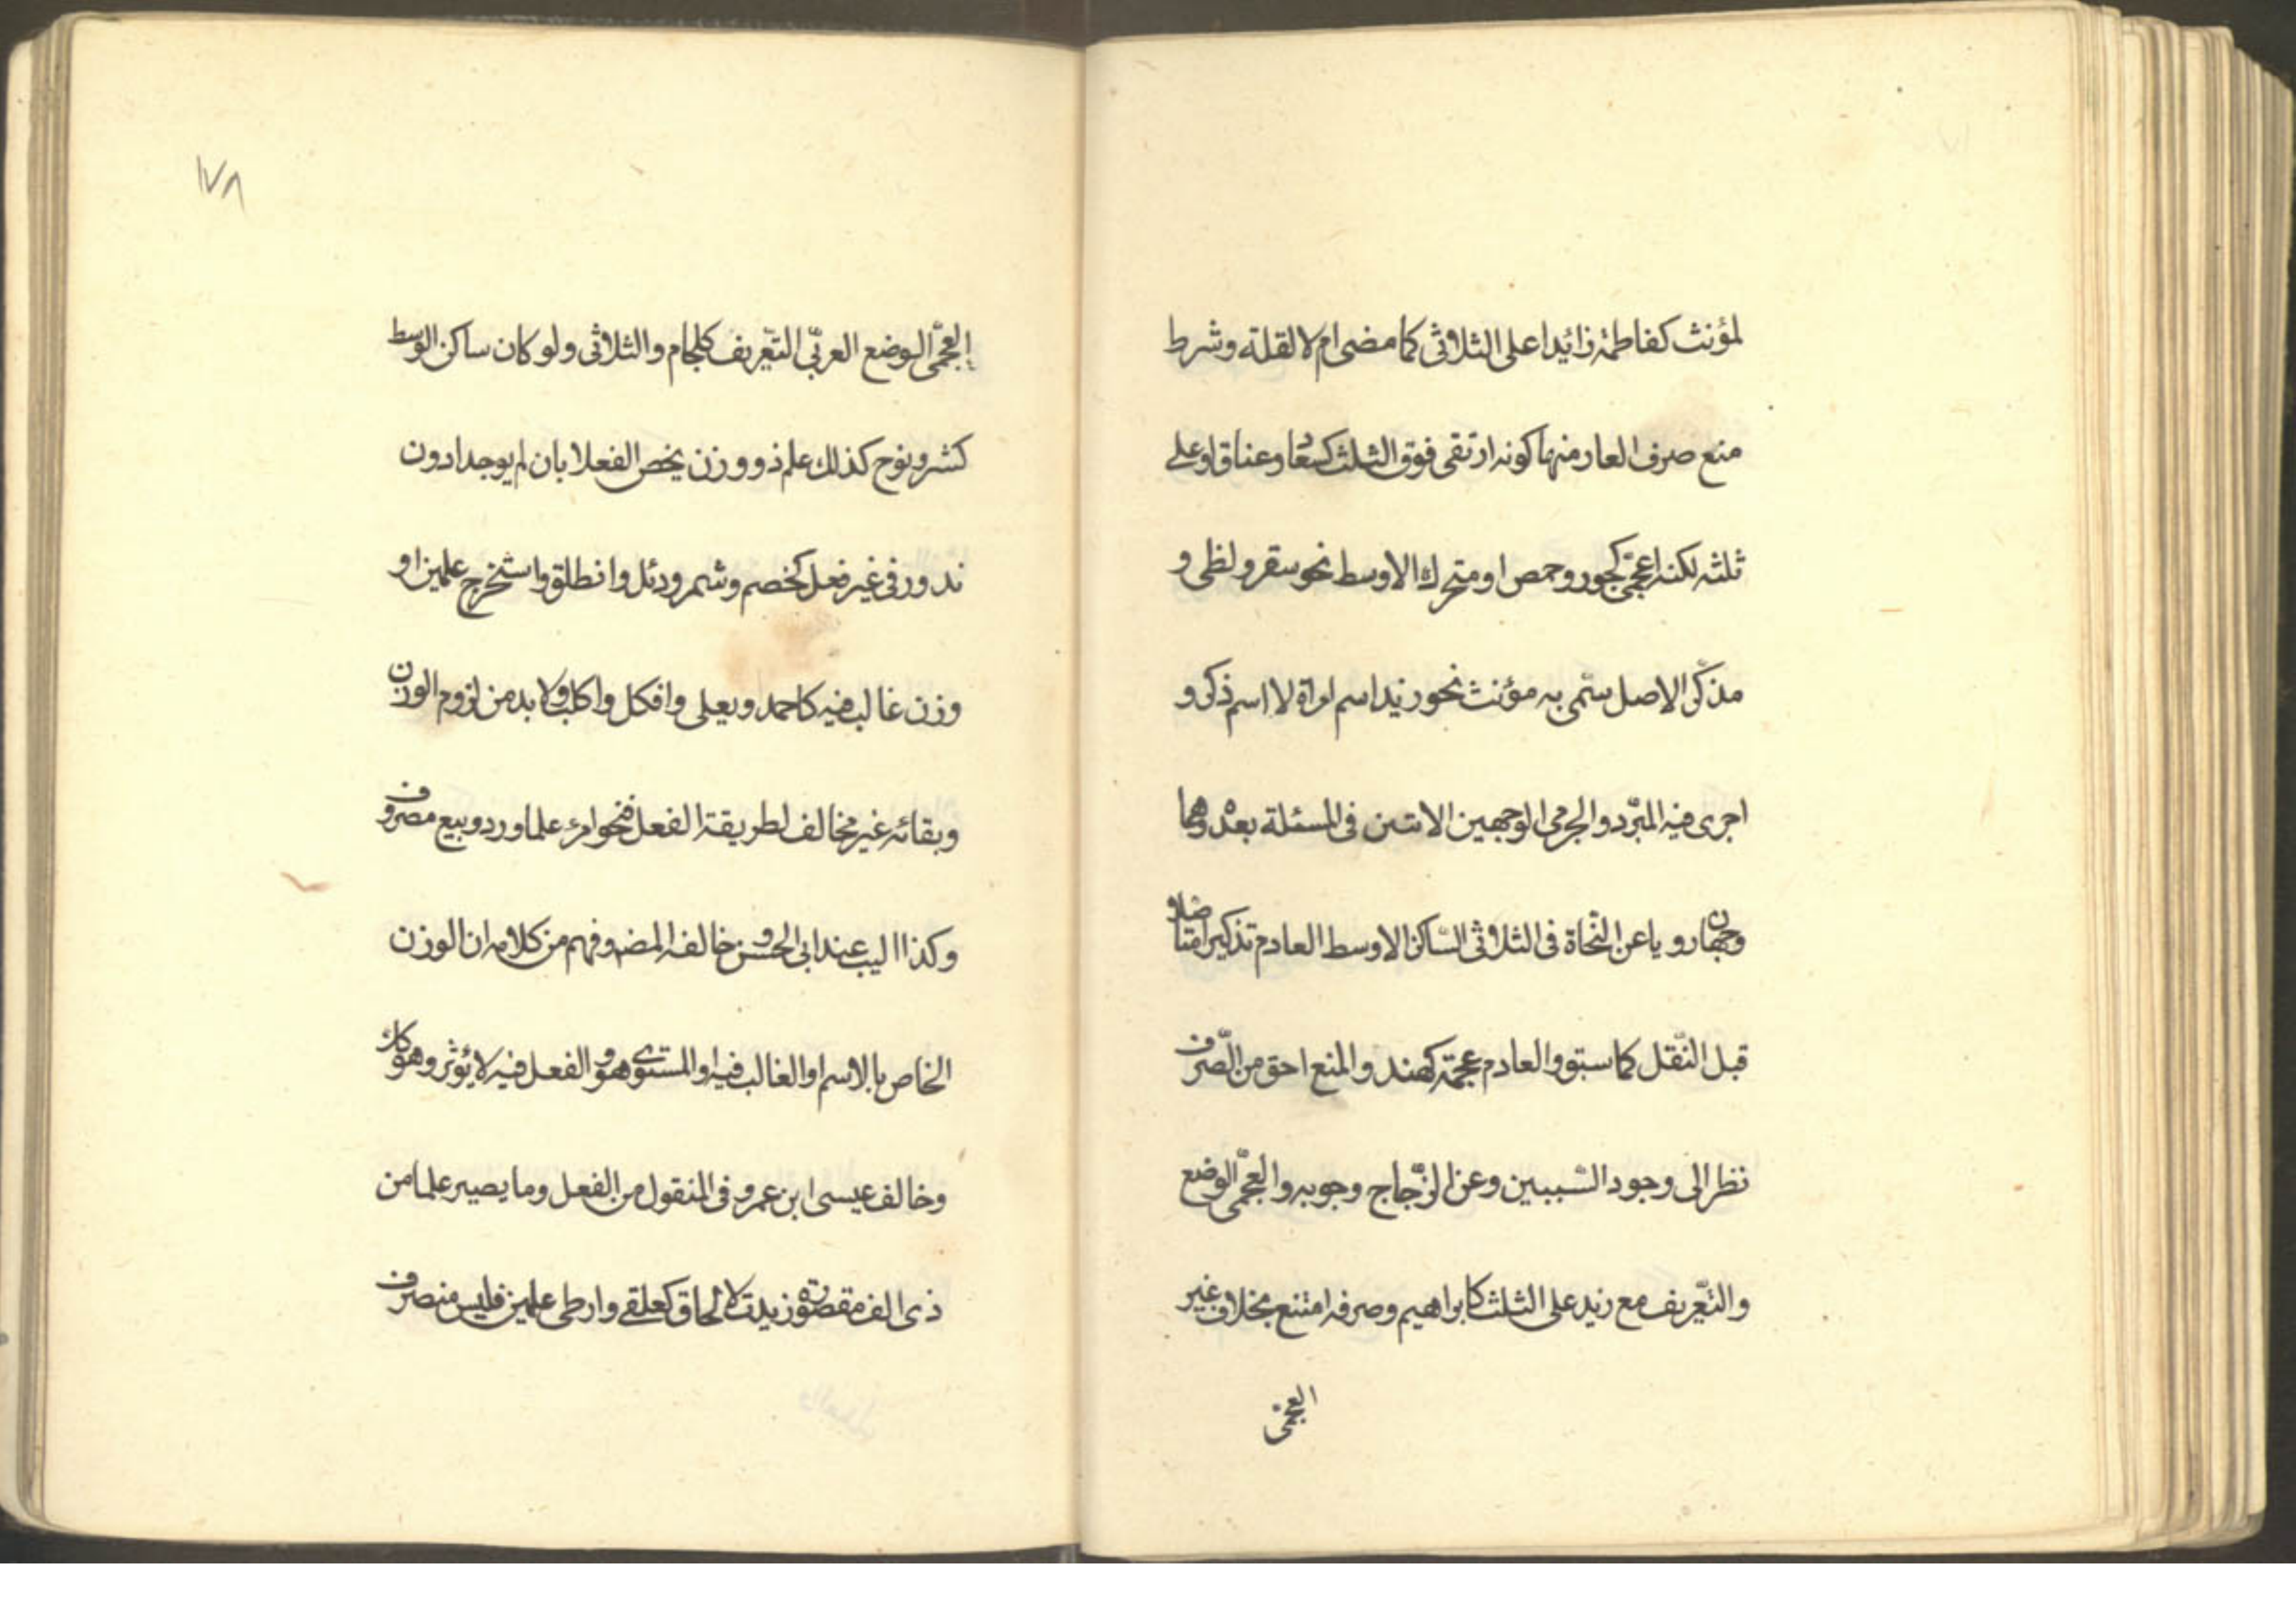 لمؤنث كفاطمة زائدا على الثلاثى كما مضى ام لا لقلة وشرط
منع صرف العار منها كونه ارتقى فوق الثلث كسعاد وعناق او على
ثلثه لكنه اعجمى كجور وحمص او متحرك الاوسط نحو سقر ولظى و
مذكر الاصل سمى به مؤنث نحو زيد اسم امراة لا اسم ذكر و
اجرى فيه المبرّد والجرمى الوجهين الاتين فى المسئلة بعد وهما
وجهان رويا عن النّحاة فى الثلاثى السّاكن الاوسط العادم تذكيرا متاصلا و
قبل النّقل كما سبق والعادم عجمة كهند والمنع احق من الصّرف
نظر الى وجود السّببين وعن الزّجاج وجوبه والعجمّى الوضع
والتّعريف مع زيد على الثلث كابراهيم وصرفه امتنع بخلاف غير
العجمى
١٧٨
العجمّى الوضع العربّى التّعريف كلجام والثلاثى ولو كان ساكن الوسط
كشتر ونوح كذلك علم ذو وزن يخص الفعلا بان لم يوجد ادون
ندور فى غير فعل كخصم وشمر ودئل وانطلق واستخرج علمين او
وزن غالب فيه كاحمد ويعلى وافكل واكلب ولا بد من لزوم الوزن
وبقائه غير مخالف لطريقة الفعل فنحو امرء علما ورد وبيع مصروف
وكذا اليب عند ابى الحسن وخالفه المض وفهم من كلامه ان الوزن
الخاص بالاسم او الغالب فيه او المستوى هو و الفعل فيه لا يؤثر وهو كذلك
وخالف عيسى ابن عمرو فى المنقول من الفعل وما يصير علما من
ذى الف مقصورة زيدت لالحاق كعلقى وارطى علمين فليس منصرف